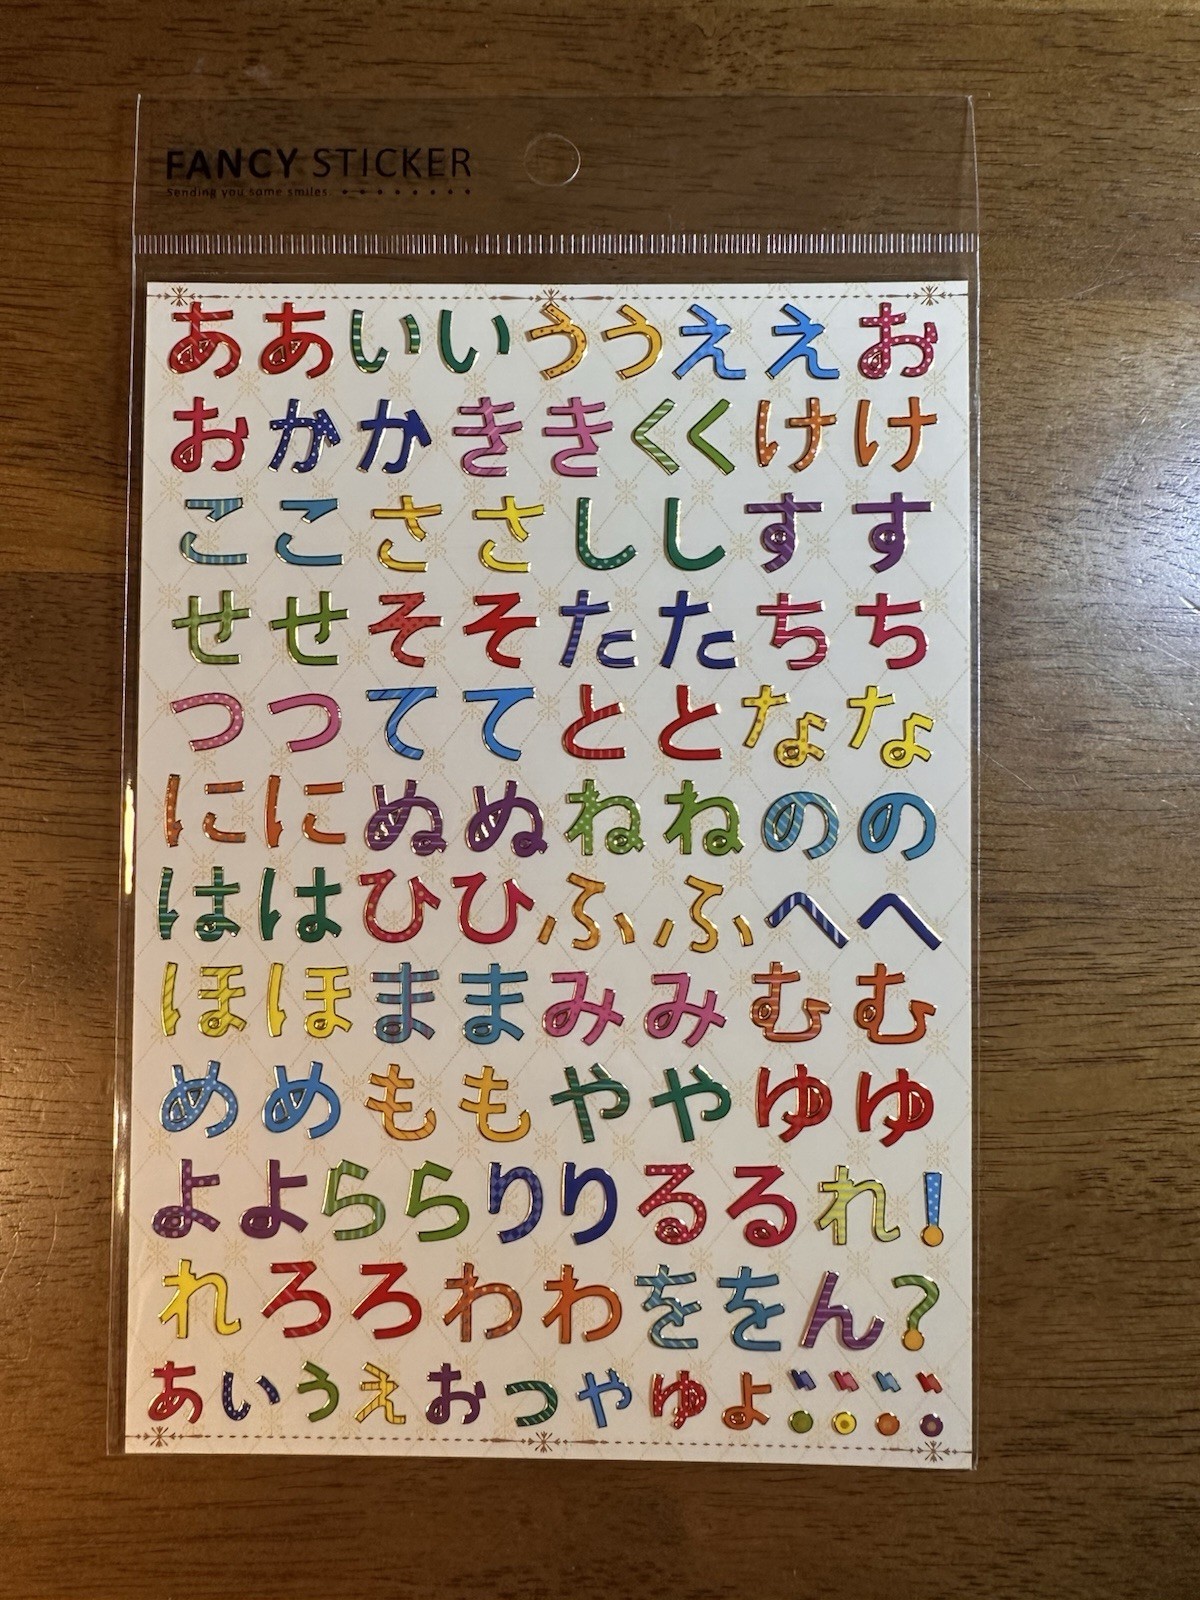 FANCY STICKER
Sending you some smiles
ああいいううええお
おかかききくくけけ
ここささししすす
せせそそたたちち
つつててととなな
ににぬぬねねのの
ははひひふふへへ
ほほままみみむむ
めめももややゆゆ
よよららりりるるれ!
れろろわわををん?
あいうえおつやゆよ゛゛゛゛
゜゜゜゜